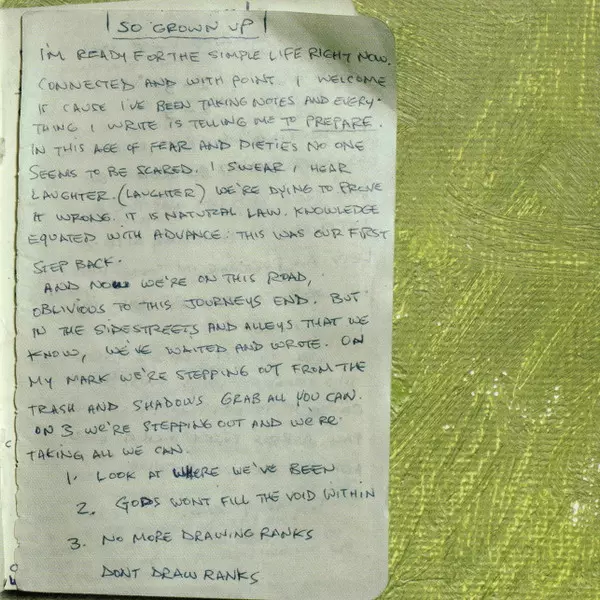 SO GROWN UP
I'M READY FOR THE SIMPLE LIFE RIGHT NOW.
CONNECTED AND WITH POINT. I WELCOME
IT CAUSE I'VE BEEN TAKING NOTES AND EVERY-
THING I WRITE IS TELLING ME TO PREPARE.
IN THIS AGE OF FEAR AND DIETIES NO ONE
SEEMS TO BE SCARED. I SWEAR I HEAR
LAUGHTER. (LAUGHTER) WE'RE DYING TO PROVE
IT WRONG. IT IS NATURAL LAW. KNOWLEDGE
EQUATED WITH ADVANCE. THIS WAS OUR FIRST
STEP BACK.
AND NOW WE'RE ON THIS ROAD,
OBLIVIOUS TO THIS JOURNEYS END. BUT
IN THE SIDESTREETS AND ALLEYS THAT WE
KNOW, WE'VE WAITED AND WROTE. ON
MY MARK WE'RE STEPPING OUT FROM THE
TRASH AND SHADOWS GRAB ALL YOU CAN.
ON 3 WE'RE STEPPING OUT AND WE'RE
TAKING ALL WE CAN.
1. LOOK AT WHERE WE'VE BEEN
2. GODS WONT FILL THE VOID WITHIN
3. NO MORE DRAWING RANKS
DONT DRAW RANKS